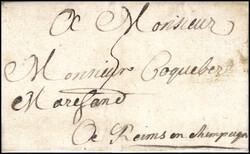 A Monsieur
Monsieur Coquebert
Marchand
A Reims en Champagne